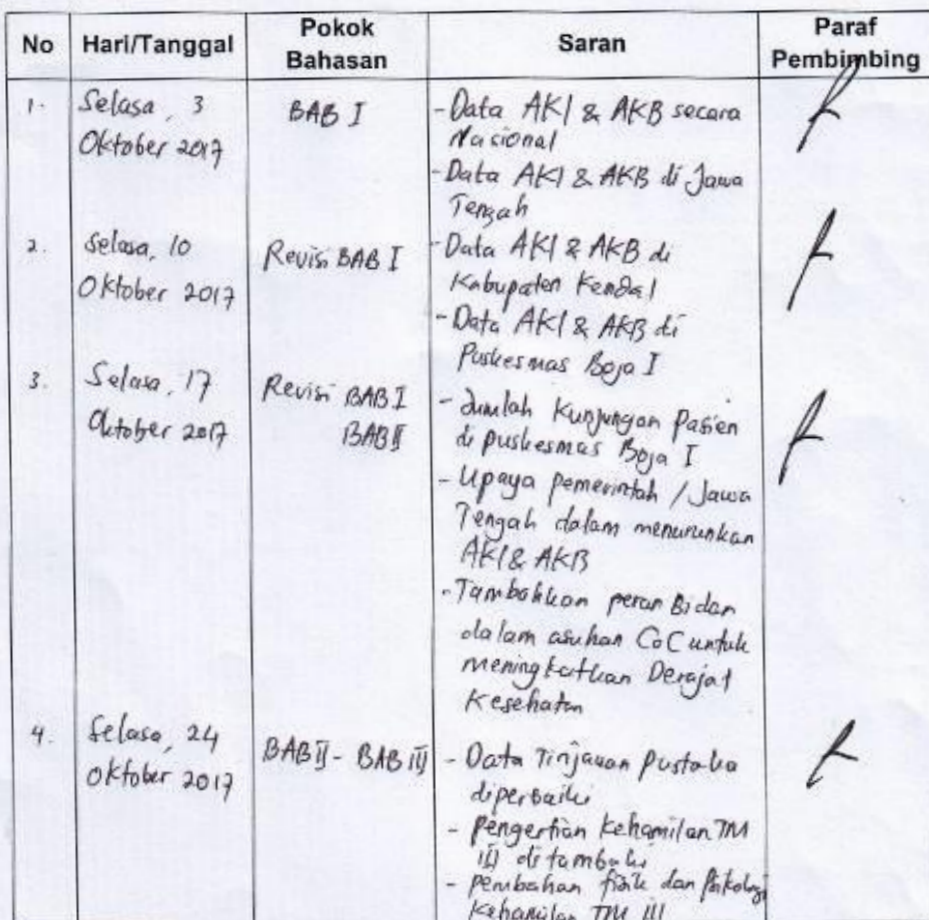 No Hari/Tanggal Pokok Bahasan Saran Paraf Pembimbing
1. Selasa, 3 Oktober 2017
BAB I
- Data AKI & AKB secara
Nasional
- Data AKI & AKB di Jawa
Tengah
2. Selasa, 10
Oktober 2017
Revisi BAB I
- Data AKI & AKB di
Kabupaten Kendal
- Data AKI & AKB di
Puskesmas Boja I
3. Selasa, 17
Oktober 2017
Revisi BAB I
BAB II
- Jumlah Kunjungan Pasien
di puskesmas Boja I
- Upaya pemerintah / Jawa
Tengah dalam menurunkan
AKI & AKB
- Tambahkan peran Bidan
dalam asuhan CoC untuk
meningkatkan Derajat
Kesehatan
4. Selasa, 24
Oktober 2017
BAB II - BAB III
- Data Tinjauan Pustaka
diperbaiki
- pengertian Kehamilan TM
III ditambahi
- perubahan fisik dan Psikologi
Kehamilan TM III